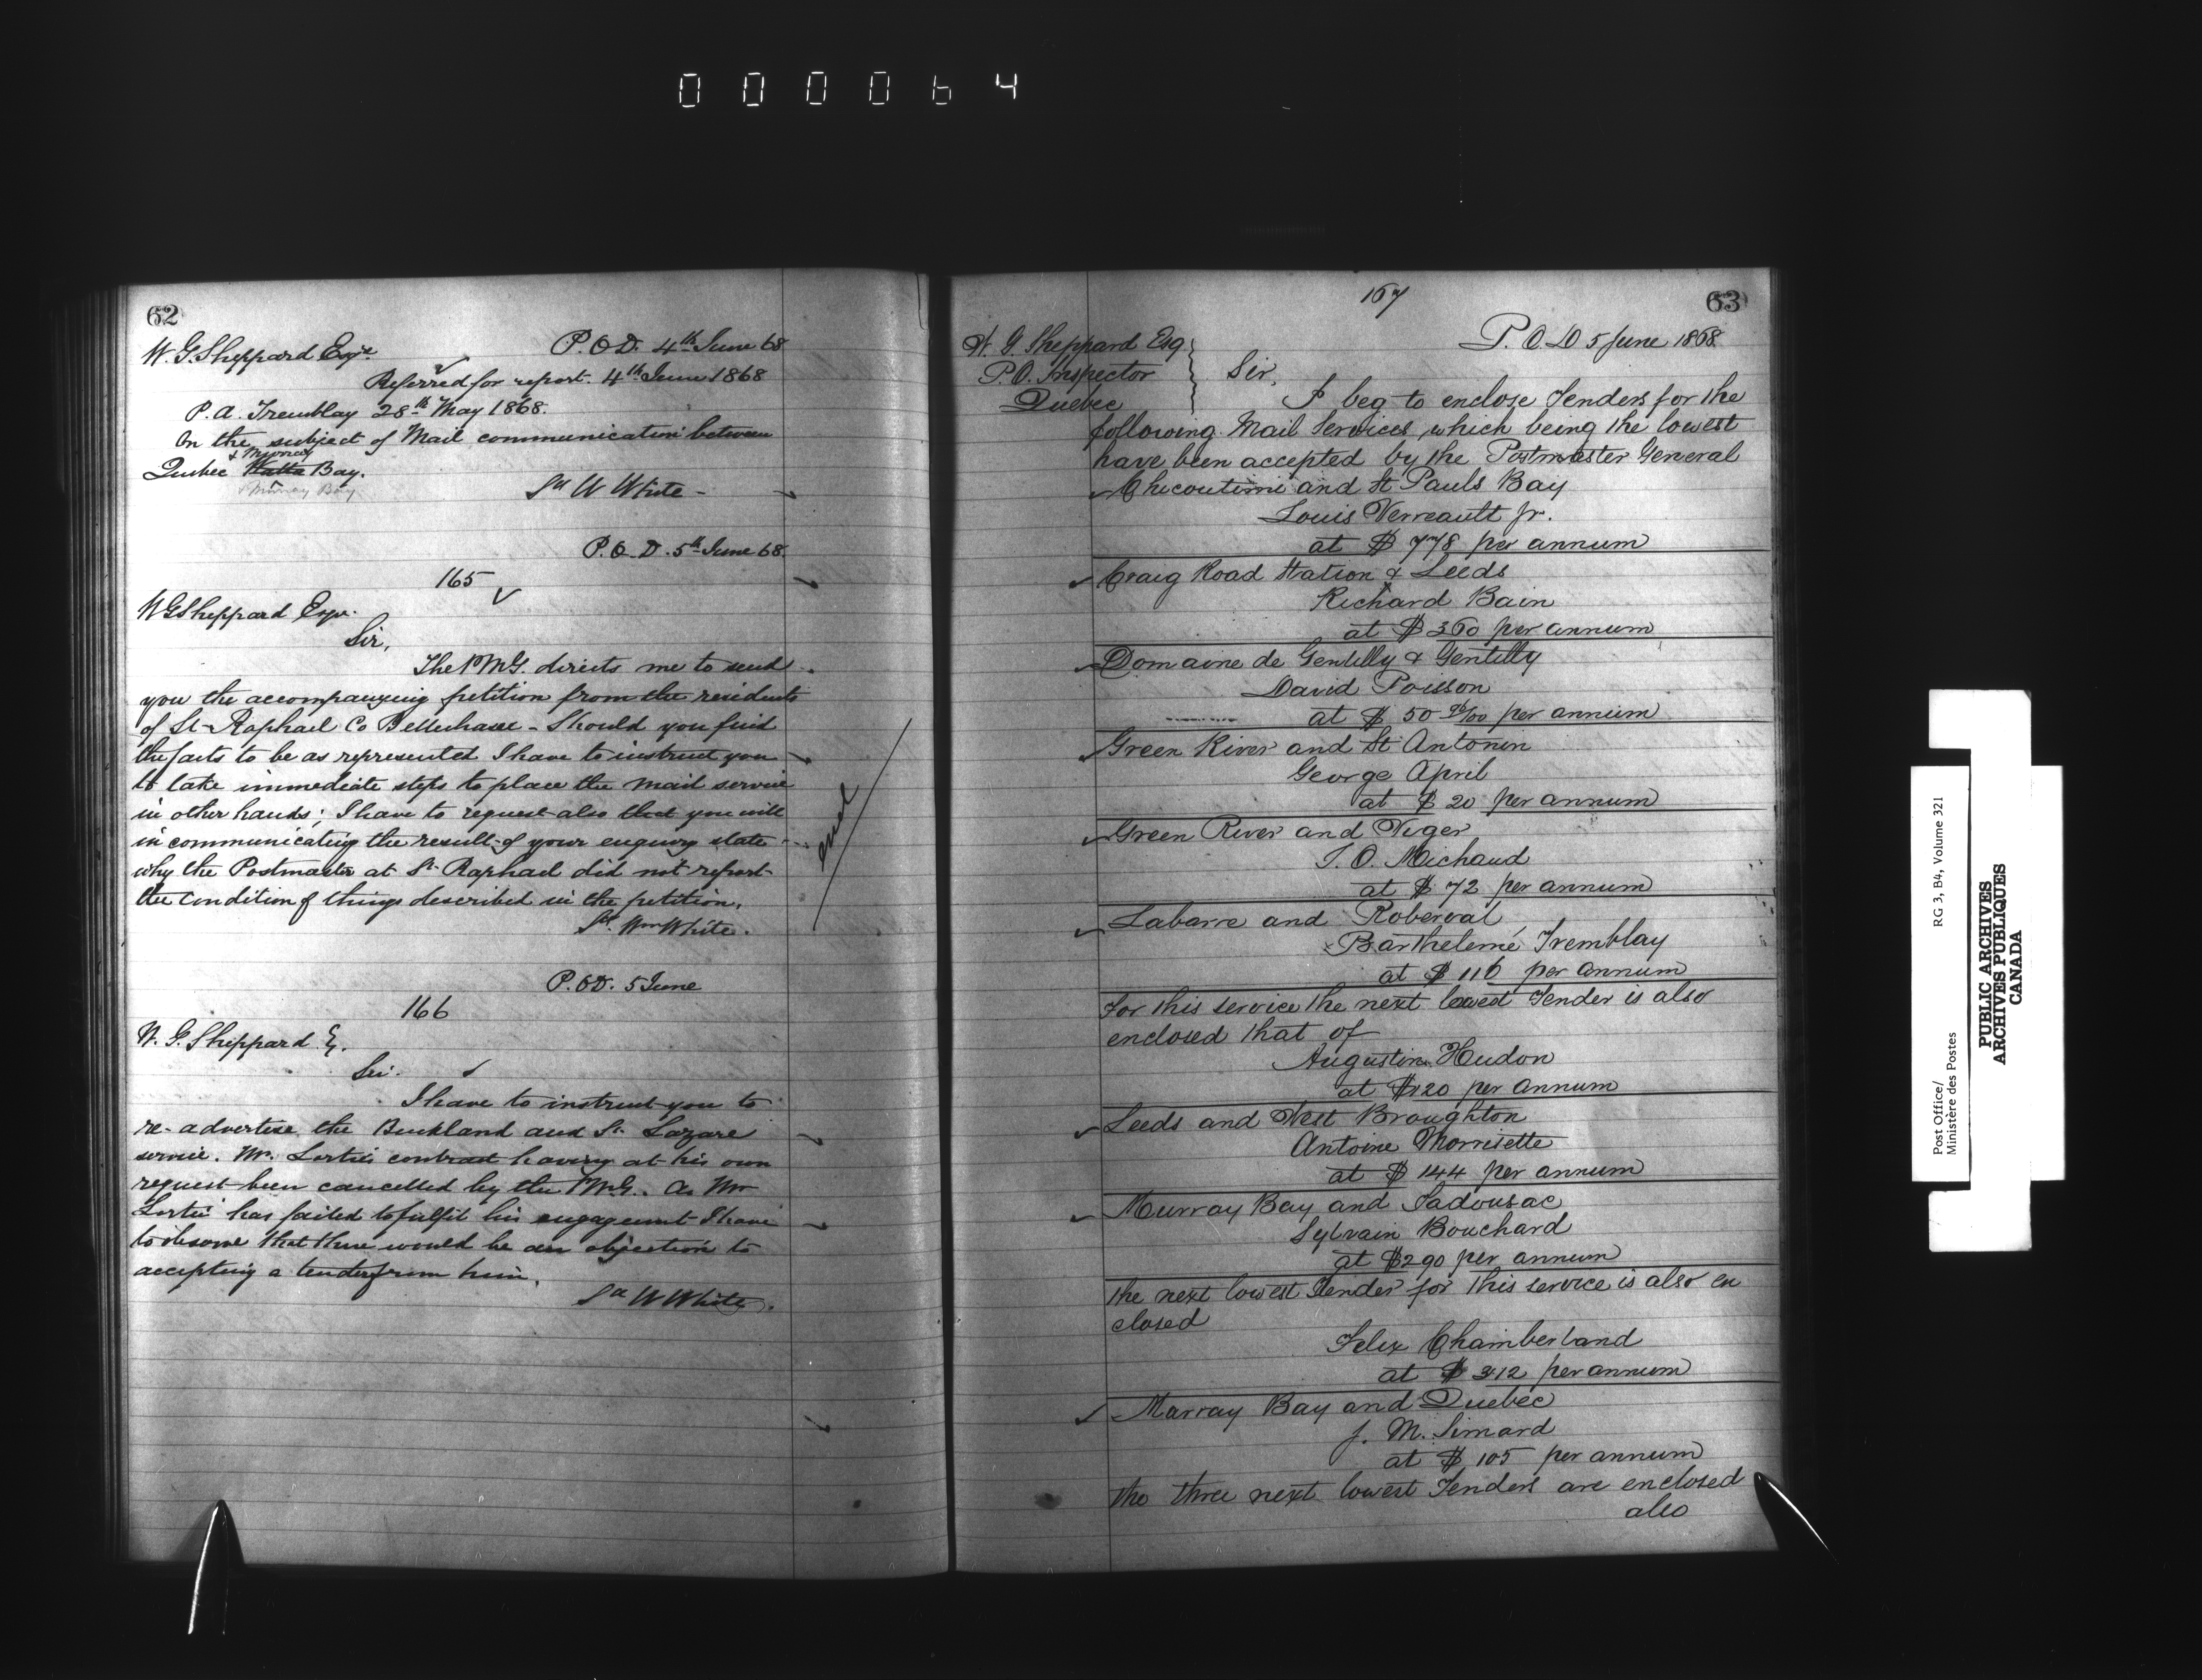 000064
62
W. G. Sheppard Esqre
P.O.D. 4th June 68
Referred for report. 4th June 1868
P. A. Tremblay 28th May 1868.
On the subject of Mail communication between
& Murray
Quebec Watta Bay.
Murray Bay
Sd W White -
P.O.D. 5th June 68
165
W G Sheppard Esqr.
Sir,
The PMG. directs me to send
you the accompanying petition from the residents
of St-Raphael Co Bellechasse - Should you find
the facts to be as represented I have to instruct you
to take immediate steps to place the mail service
in other hands; I have to request also that you will
in communicating the result of your enquiry state
why the Postmaster at St. Raphael did not report
the condition of things described in the petition.
Sd. Wm White.
P.OD. 5 June
166
W. G. Sheppard E.
Sir.
I have to instruct you to
re-advertise the Buckland and St. Lazare
service. Mr. Lortie's contract having at his own
request been cancelled by the PMG. As Mr
Lortie has failed to fulfil his engagement I have
to observe that there would be an objection to
accepting a tender from him.
Sd W White.
63
167
P.O.D 5 June 1868
W. G. Sheppard Esq
P.O. Inspector
Quebec
Sir,
I beg to enclose Tenders for the
following Mail Services, which being the lowest
have been accepted by the Postmaster General
Chicoutimi and St Pauls Bay
Louis Verreault Jr.
at $ 778 per annum
Craig Road Station & Leeds
Richard Bain
at $ 360 per annum
Domaine de Gentilly & Gentilly
David Poisson
at $ 50 90/100 per annum
Green River and St Antonin
George April
at $ 20 per annum
Green River and Viger
T. O. Michaud
at $ 72 per annum
Labarre and Roberval
Barthelemé Tremblay
at $ 116 per annum
For this service the next lowest Tender is also
enclosed that of
Augustin Hudon
at $120 per annum
Leeds and West Broughton
Antoine Morrisette
at $ 144 per annum
Murray Bay and Tadousac
Sylvain Bouchard
at $290 per annum
the next lowest Tender for this service is also en
closed
Felix Chamberland
at $ 312 per annum
Marray Bay and Quebec
J. M. Simard
at $ 105 per annum
the three next lowest Tenders are enclosed
also
Post Office/
Ministère des Postes
RG 3, B4, Volume 321
PUBLIC ARCHIVES
ARCHIVES PUBLIQUES
CANADA